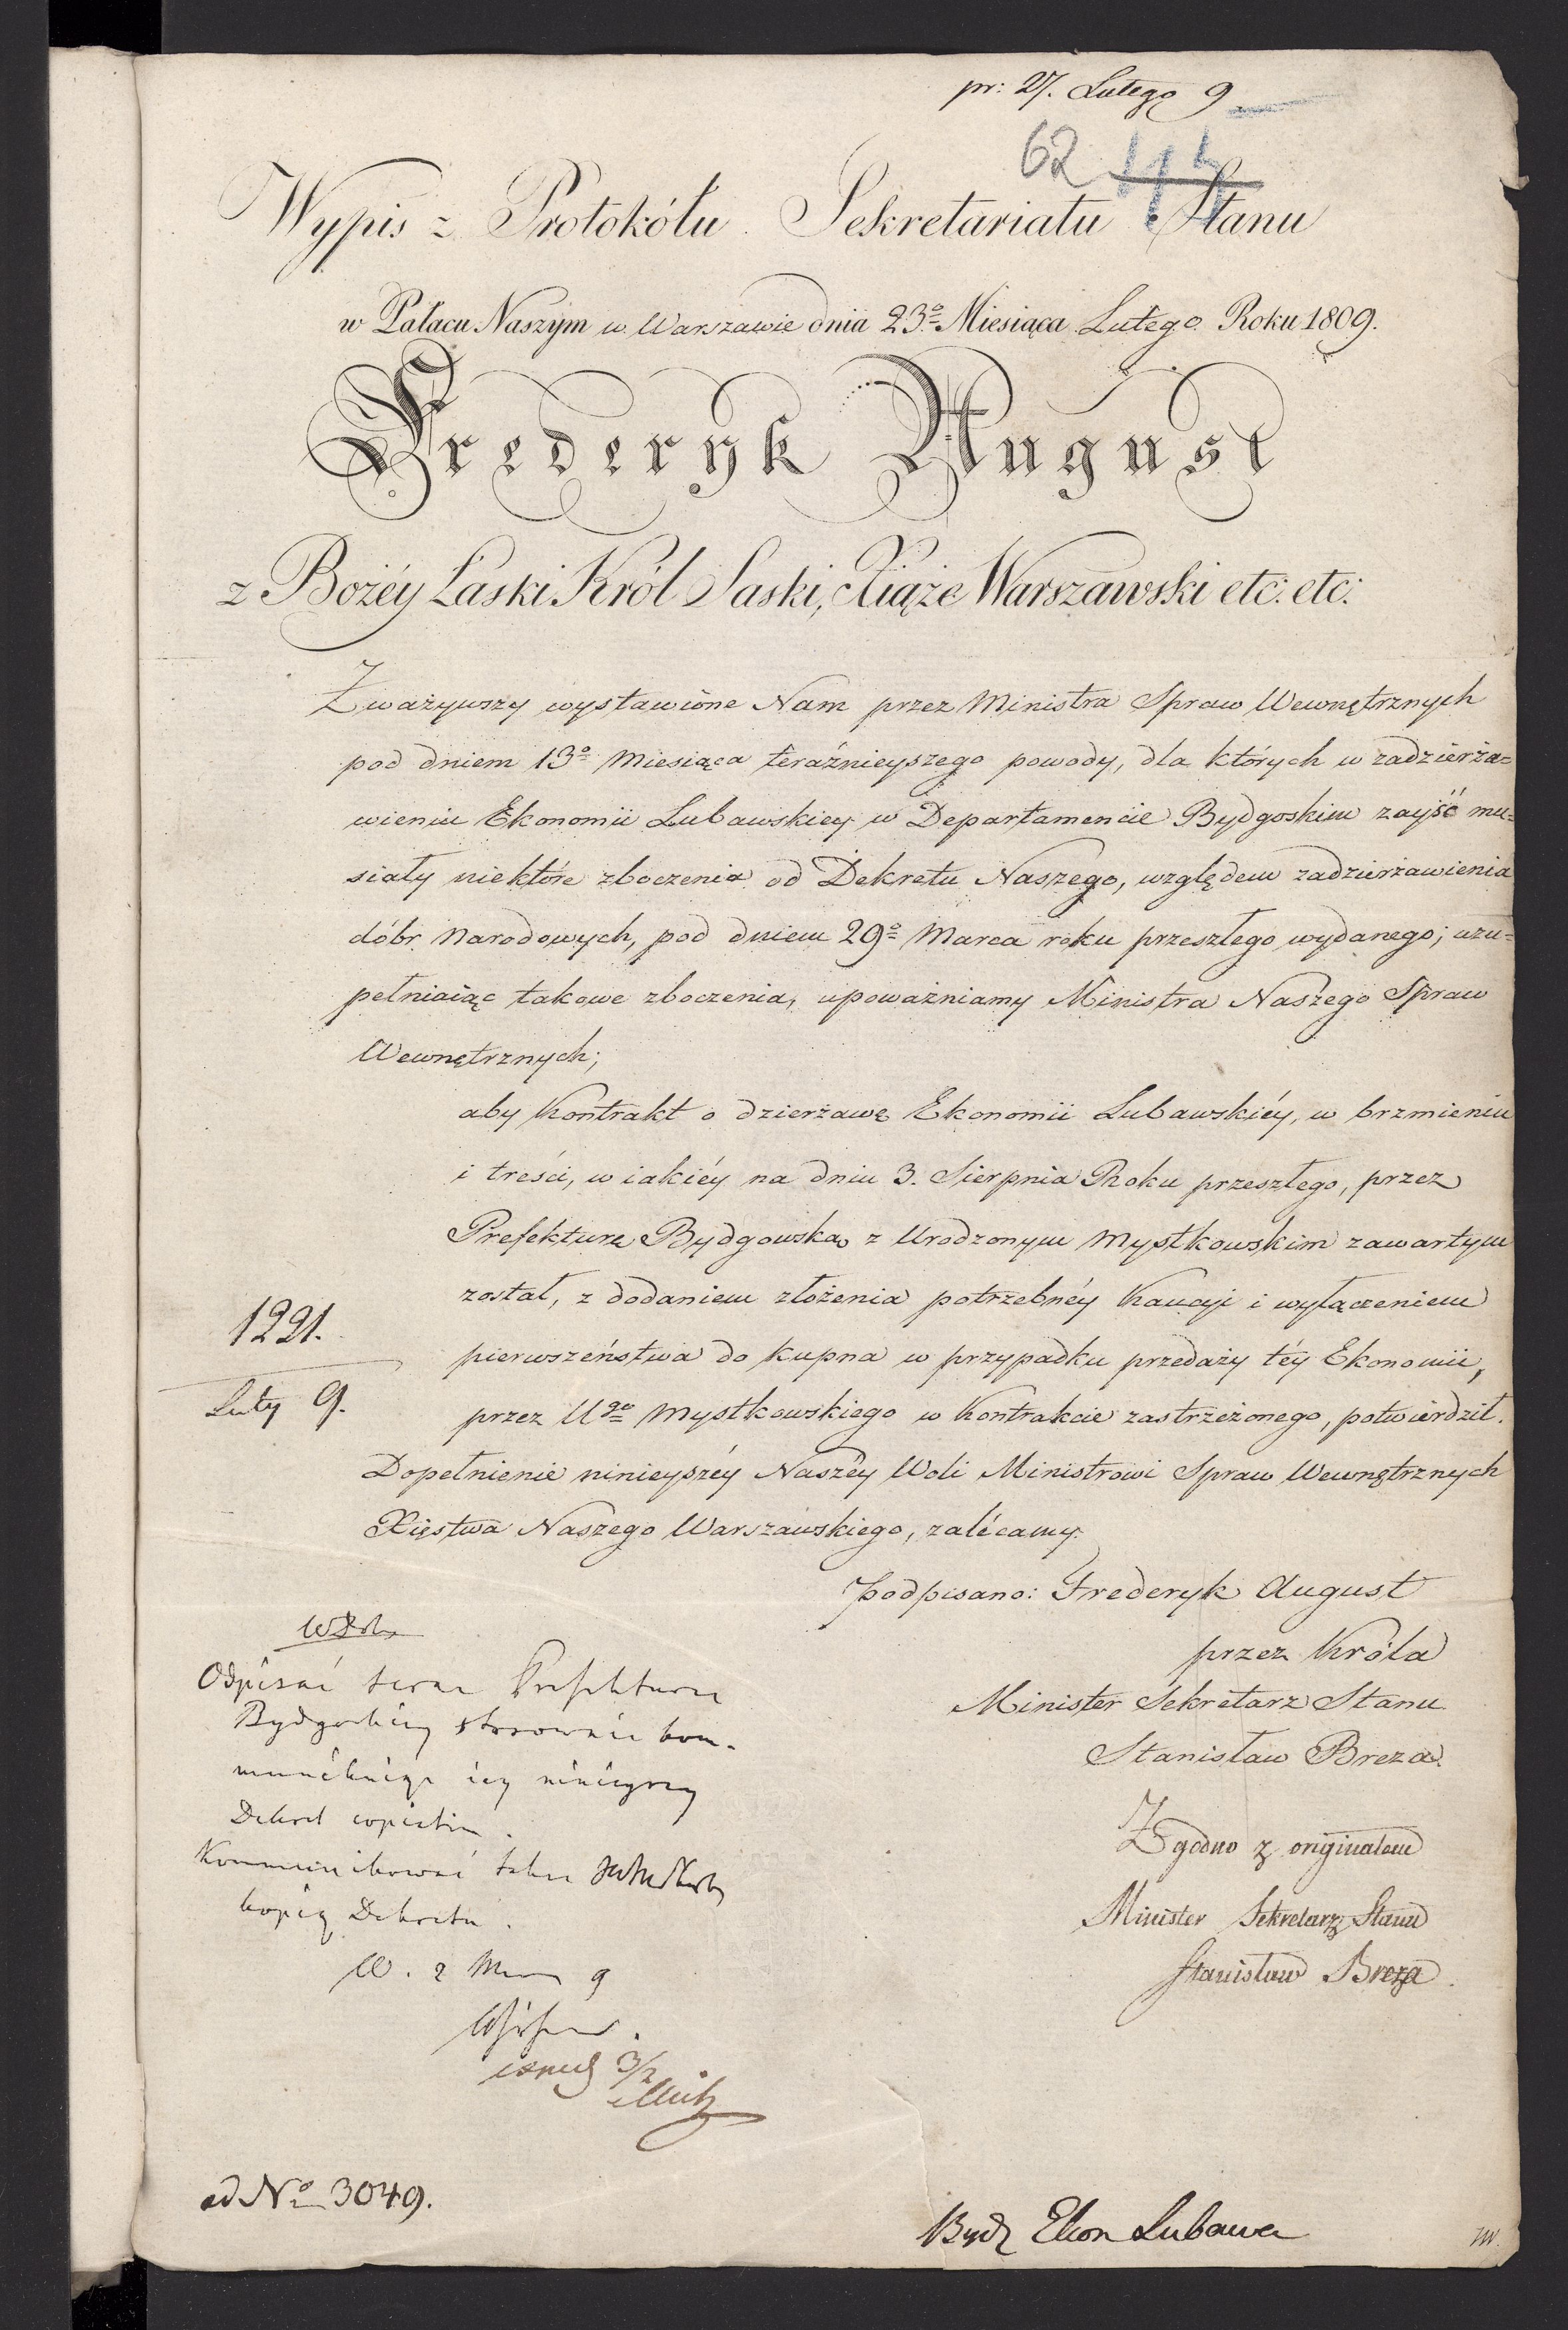 pr: 27. Lutego 9
62
Wypis z Protokółu Sekretariatu Stanu
w Pałacu Naszym w Warszawie dnia 23º Miesiąca Lutego Roku 1809.
Frederyk August
z Bożéy Łaski Król Saski, Xiąże Warszawski etc: etc:
Zważywszy wystawione Nam przez Ministra Spraw Wewnętrznych
pod dniem 13º Miesiąca teraźnieyszego powody, dla których w zadzierża=
wieniu Ekonomii Lubawskiey w Departamencie Bydgoskim zayść mu=
siały niektóre zboczenia od Dekretu Naszego, względem zadzierżawienia
dóbr Narodowych, pod dniem 29º Marca roku przeszłego wydanego; uzu=
pełniaiąc takowe zboczenia, upoważniamy Ministra Naszego Spraw
Wewnętrznych;
aby Kontrakt o dzierżawę Ekonomii Lubawskiéy, w brzmieniu
i treści, w iakiéy na dniu 3. Sierpnia Roku przeszłego, przez
Prefekturę Bydgowską z Urodzonym Mystkowskim zawartym
został, z dodaniem złożenia potrzebnéy Kaucyi i wyłączeniem
1221.
pierwszeństwa do kupna w przypadku przedaży téy Ekonomii,
Luty 9.
przez Ugo Mystkowskiego w Kontrakcie zastrzeżonego, potwierdził.
Dopełnienie ninieyszéy Naszéy Woli Ministrowi Spraw Wewnętrznych
Xięstwa Naszego Warszawskiego, zalécamy.
podpisano: Frederyk August
przez Króla
Minister Sekretarz Stanu
Stanisław Breza
Zgodno z originałem
Minister Sekretarz Stanu
Stanisław Breza
Odpisać Prefekturze
Bydgoskiey stosownie kom-
munikuiąc iey ninieyszy
Dekret
Kommunikować także
kopią Dekretu.
W. 2 9
ad Nº 3049.
Bydg Ekon Lubawa